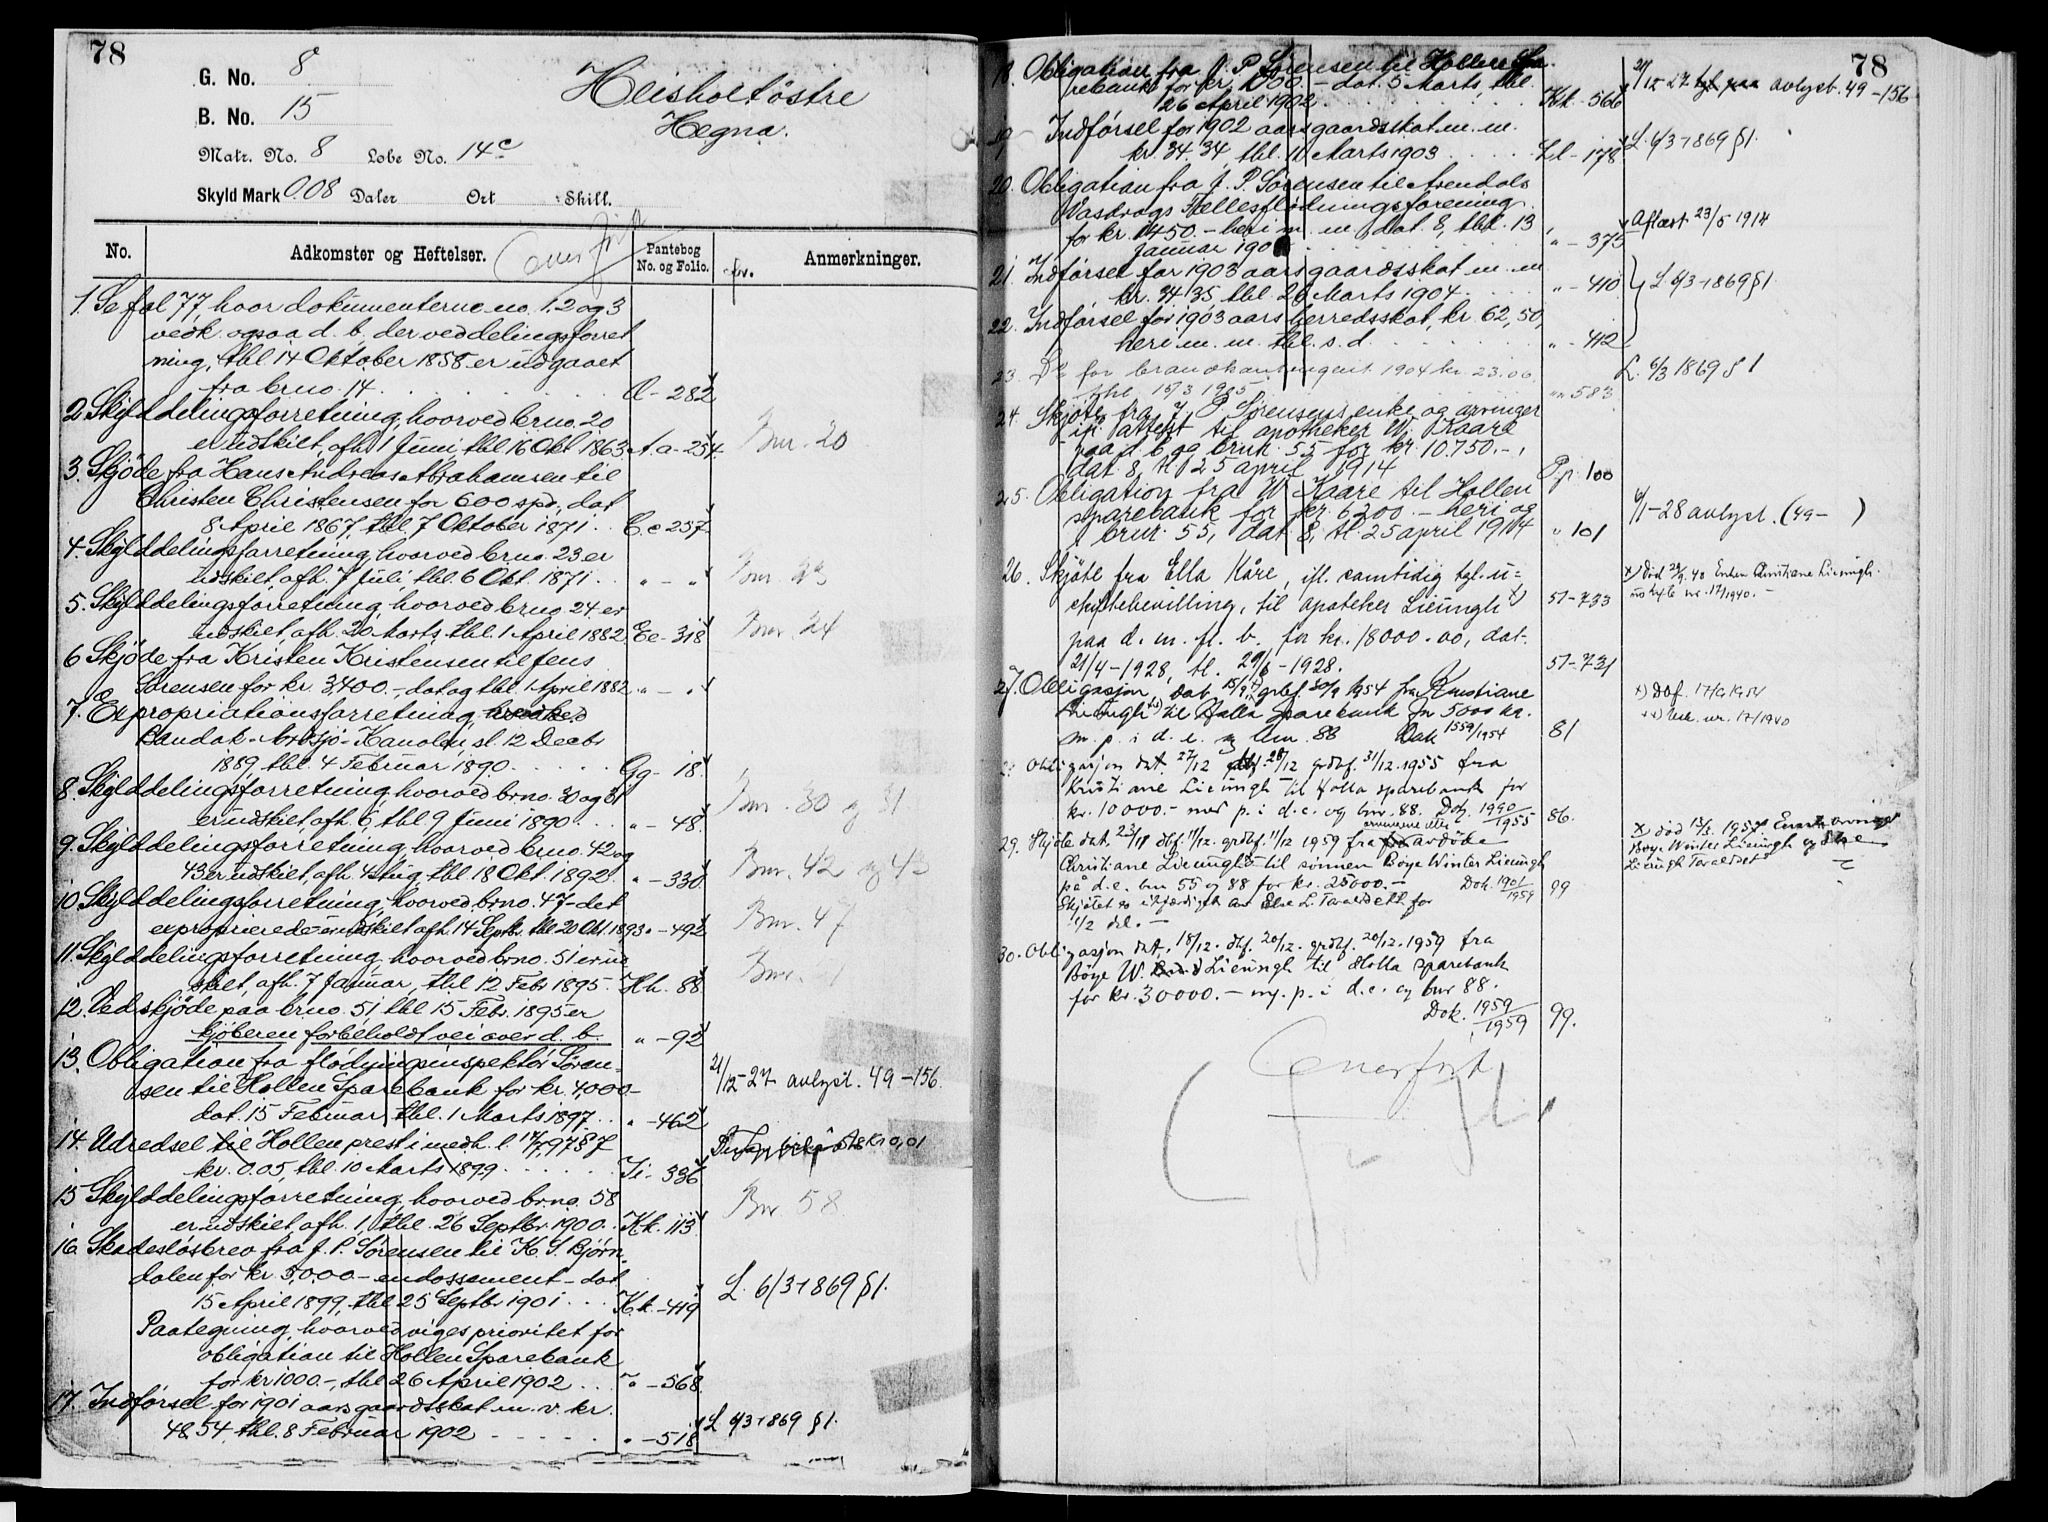 78
G. No. 8
B. No. 15
Matr. No. 8 Løbe No. 14c
Skyld Mark 0.08 Daler Ort Skill.
Heisholt østre
Hegna.
No. Adkomster og Heftelser. Pantebog No. og Folio. Anmerkninger.
Overført
1. Se fol 77, hvor dokumenterne no. 1. 2 og 3
vedk. ogsaa d. b., der ved delingsforret
ning, thl 14 Oktober 1858 er udgaaet
fra brno. 14. O - 282
2. Skylddelingsforretning, hvorved brno. 20
er udskilt, afh. 1 Juni, thl 16 Okt 1863 A.a - 254. Bnr. 20
3. Skjøde fra Hans Andreas Abrahamsen til
Christen Christensen for 600 spd., dat
8 April 1867, thl 7 Oktober 1871. C.c 257.
4. Skylddelingsforretning, hvorved brno. 23 er
udskilt, afh. 7 Juli, thl. 6 Okt. 1871. " - " Bnr. 23
5. Skylddelingsforretning, hvorved brno. 24 er
udskilt, afh. 20 Marts, thl. 1 April 1882. Ee - 318 Bnr. 24
6 Skjøde fra Kristen Kristensen til Jens
Sørensen for kr. 3,400.- dat og thl. 1 April 1882. " - "
7. Expropriationsforretning,
Bandak-Norsjø-Kanalen, sl. 12 Decbr
1889, thl. 4 Februar 1890. Gg - 18.
8. Skylddelingsforretning, hvorved brno. 30 og 31
er udskilt, afh. 6, thl 9 Juni 1890. " - 48. Bnr. 30 og 31.
9. Skylddelingsforretning, hvorved brno. 42 og
43 er udskilt, afh. 4 Aug, thl 18 Okt. 1892. " - 330 Bnr. 42 og 43
10. Skylddelingsforretning, hvorved brno. 47 - det
exproprierede - er udskilt afh. 14 Septbr. thl 20 Okt 1893. " - 492 Bnr. 47
11. Skylddelingsforretning, hvorved brno. 51 er ud
skilt, afh. 7 Januar, thl 12 Febr 1895. Hh. 88 Bnr. 51
12. Ved skjøde paa brno. 51, thl 15 Febr. 1895 er
kjøberen forbeholdt vei over d. b. " - 92
13. Obligation fra flødningsinspektør Søren-
sen til Hollen Sparebank for kr. 4,000-
dat. 15 Februar, thl. 1 Marts 1897. " - 462 21/12-27 avlyst. 49-156.
14. Udredsel til Hollen prest i medh. l.
kr. 0.05, thl. 10 Marts 1899. Ii - 336
15 Skylddelingsforretning, hvorved brno. 58
er udskilt, afh. 1, thl. 26 Septbr. 1900. K.k. 113 Bnr 58.
16. Skadesløsbrev fra J. P. Sørensen til K. S. Bjørn
dalen for kr 5,000 - endossement - dat
15 April 1899, thl 25 Septbr 1901. K.k. - 419 L. 6/3 1869 § 1.
Paategning, hvorved viges prioritet for
obligation til Hollen Sparebank
for kr 1000.-, thl 26 April 1902. " - 568.
17. Indførsel for 1901 aars gaardskat m. v. kr.
48.54, thl. 8 Februar 1902 " - 518 L 6/3 1869 § 1.
78
18. Obligation fra J. P. Sørensen til Hollen Spa-
rebank for kr. 1000.- dat. 5 Marts, thl.
26 April 1902. K.k. 566 21/12 27 avlyst. 49-156
19. Indførsel for 1902 aars gaardsskat m. m.
kr. 34.34, thl. 11 Marts 1903. Ll - 178 L. 6/3 1869 § 1.
20. Obligation fra J. P. Sørensen til Arendals
Vasdrags Fællesflødningsforening
for kr. 1450.- heri m. m. dat. 8, thl. 13
Januar 190 " - 375 Aflæst 23/5 1914
21. Indførsel for 1903 aars gaardsskat m. m
kr. 34.35, thl. 26 Marts 1904. " - 410 } L 6/3 1869 § 1
22. Indførsel for 1903 aars herredsskat, kr. 62,50,
heri m. m. thl. s. d. " - 412
23. Do for brandkontingent 1904 kr 23.06.
thl. 16/3 1905 " " 583 L. 6/3 1869 § 1
24. Skjøte fra J. P. Sørensens enke og arvinger
ifl. attest til apotheker W. Kaare
paa d. b. og bruk. 55 for kr. 10.750.-,
dat. 8, tl. 25 april 1914 Pp. 100
25. Obligation fra W. Kaare til Hollen
sparebank for kr. 6200.- heri og
bruk. 55, dat. 8, tl 25 april 1914 " 101 6/1-28 avlyst. (49- )
26. Skjøte fra Ella Kåre, ifl. samtidig tgl. u-
skiftebevilling, til apoteker Lieungh x)
paa d. m. fl. b. for kr. 18000.00, dat.
21/4-1928, tl. 29/6-1928. 51-733 51-731
x) Død 29/9. 40 Enken Christiane Lieungh.
nr. 17/1940.-
27. Obligasjon, dat. 15/9 grbf. 30/9 1954 fra Kristiane
Lieungh til Holla Sparebank for 5000 kr.
m. p. i d. e. og bnr. 88 Dok 1559/1954 81
x) Dbf. 17/9 1954
xx) Usk. nr. 17/1940
28. Obligasjon dat. 27/12 dbf. 28/12 grbf. 31/12.1955 fra
Kristiane Lieungh til Holla sparebank for
kr. 10000.- med p. i d. e. og bnr. 88. Dok. 1990/1955 86.
29. Skjøte dat. 23/11 dbf. 11/12. grbf. 11/12 1959 fra arvingene etter avdøde
Christiane Lieungh til sønnen Böye Winter Lieungh
på d. e. bnr 55 og 88 for kr. 25000.- Dok. 1901/1959 99
Skjøtet er utferdiget av Else L. Taraldset for
1/2 del.-
x) død 13/5. 1957. Eneste arvinger
Böye Winter Lieungh og Else
Lieungh Taraldset
30. Obligasjon dat. 18/12. dbf. 20/12. grbf. 20/12.1959 fra
Böye W. Lieungh til Holla sparebank
for kr. 30000.- m. p. i d. e. og bnr 88.
Dok. 1959/1959 99.
Overført